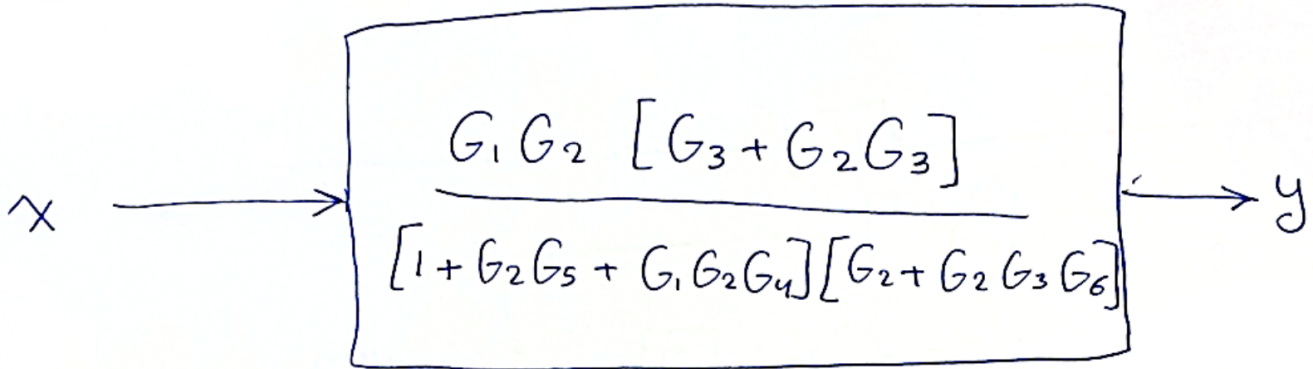 G₁G₂ [G₃ + G₂G₃]
x y
[1 + G₂G₅ + G₁G₂G₄][G₂ + G₂G₃G₆]